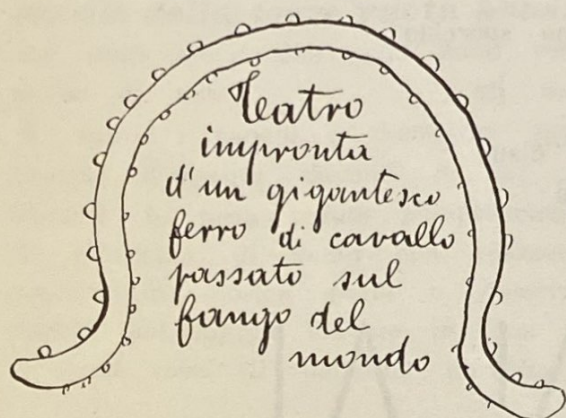 Teatro
impronta
d'un gigantesco
ferro di cavallo
passato sul
fango del
mondo